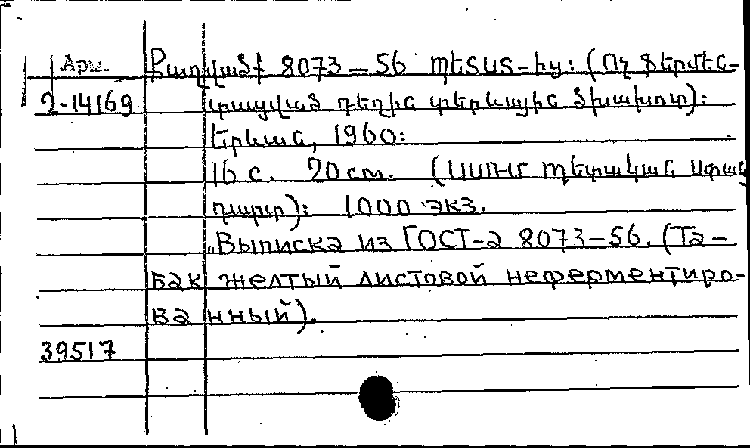 Арм. Քաղված 8073-56 ՊԵՏՍՏ-ից: (Ոչ ֆերմեն-
2-14169 տացված դեղին տերևային ծխախոտ):
Երևան, 1960:
16 с. 20 см. (ՍՍՌՄ Պետական Ստան
դարտ): 1000 экз.
„Выписка из ГОСТ-а 8073-56. (Та-
бак желтый листовой неферментиро-
ванный).
39517